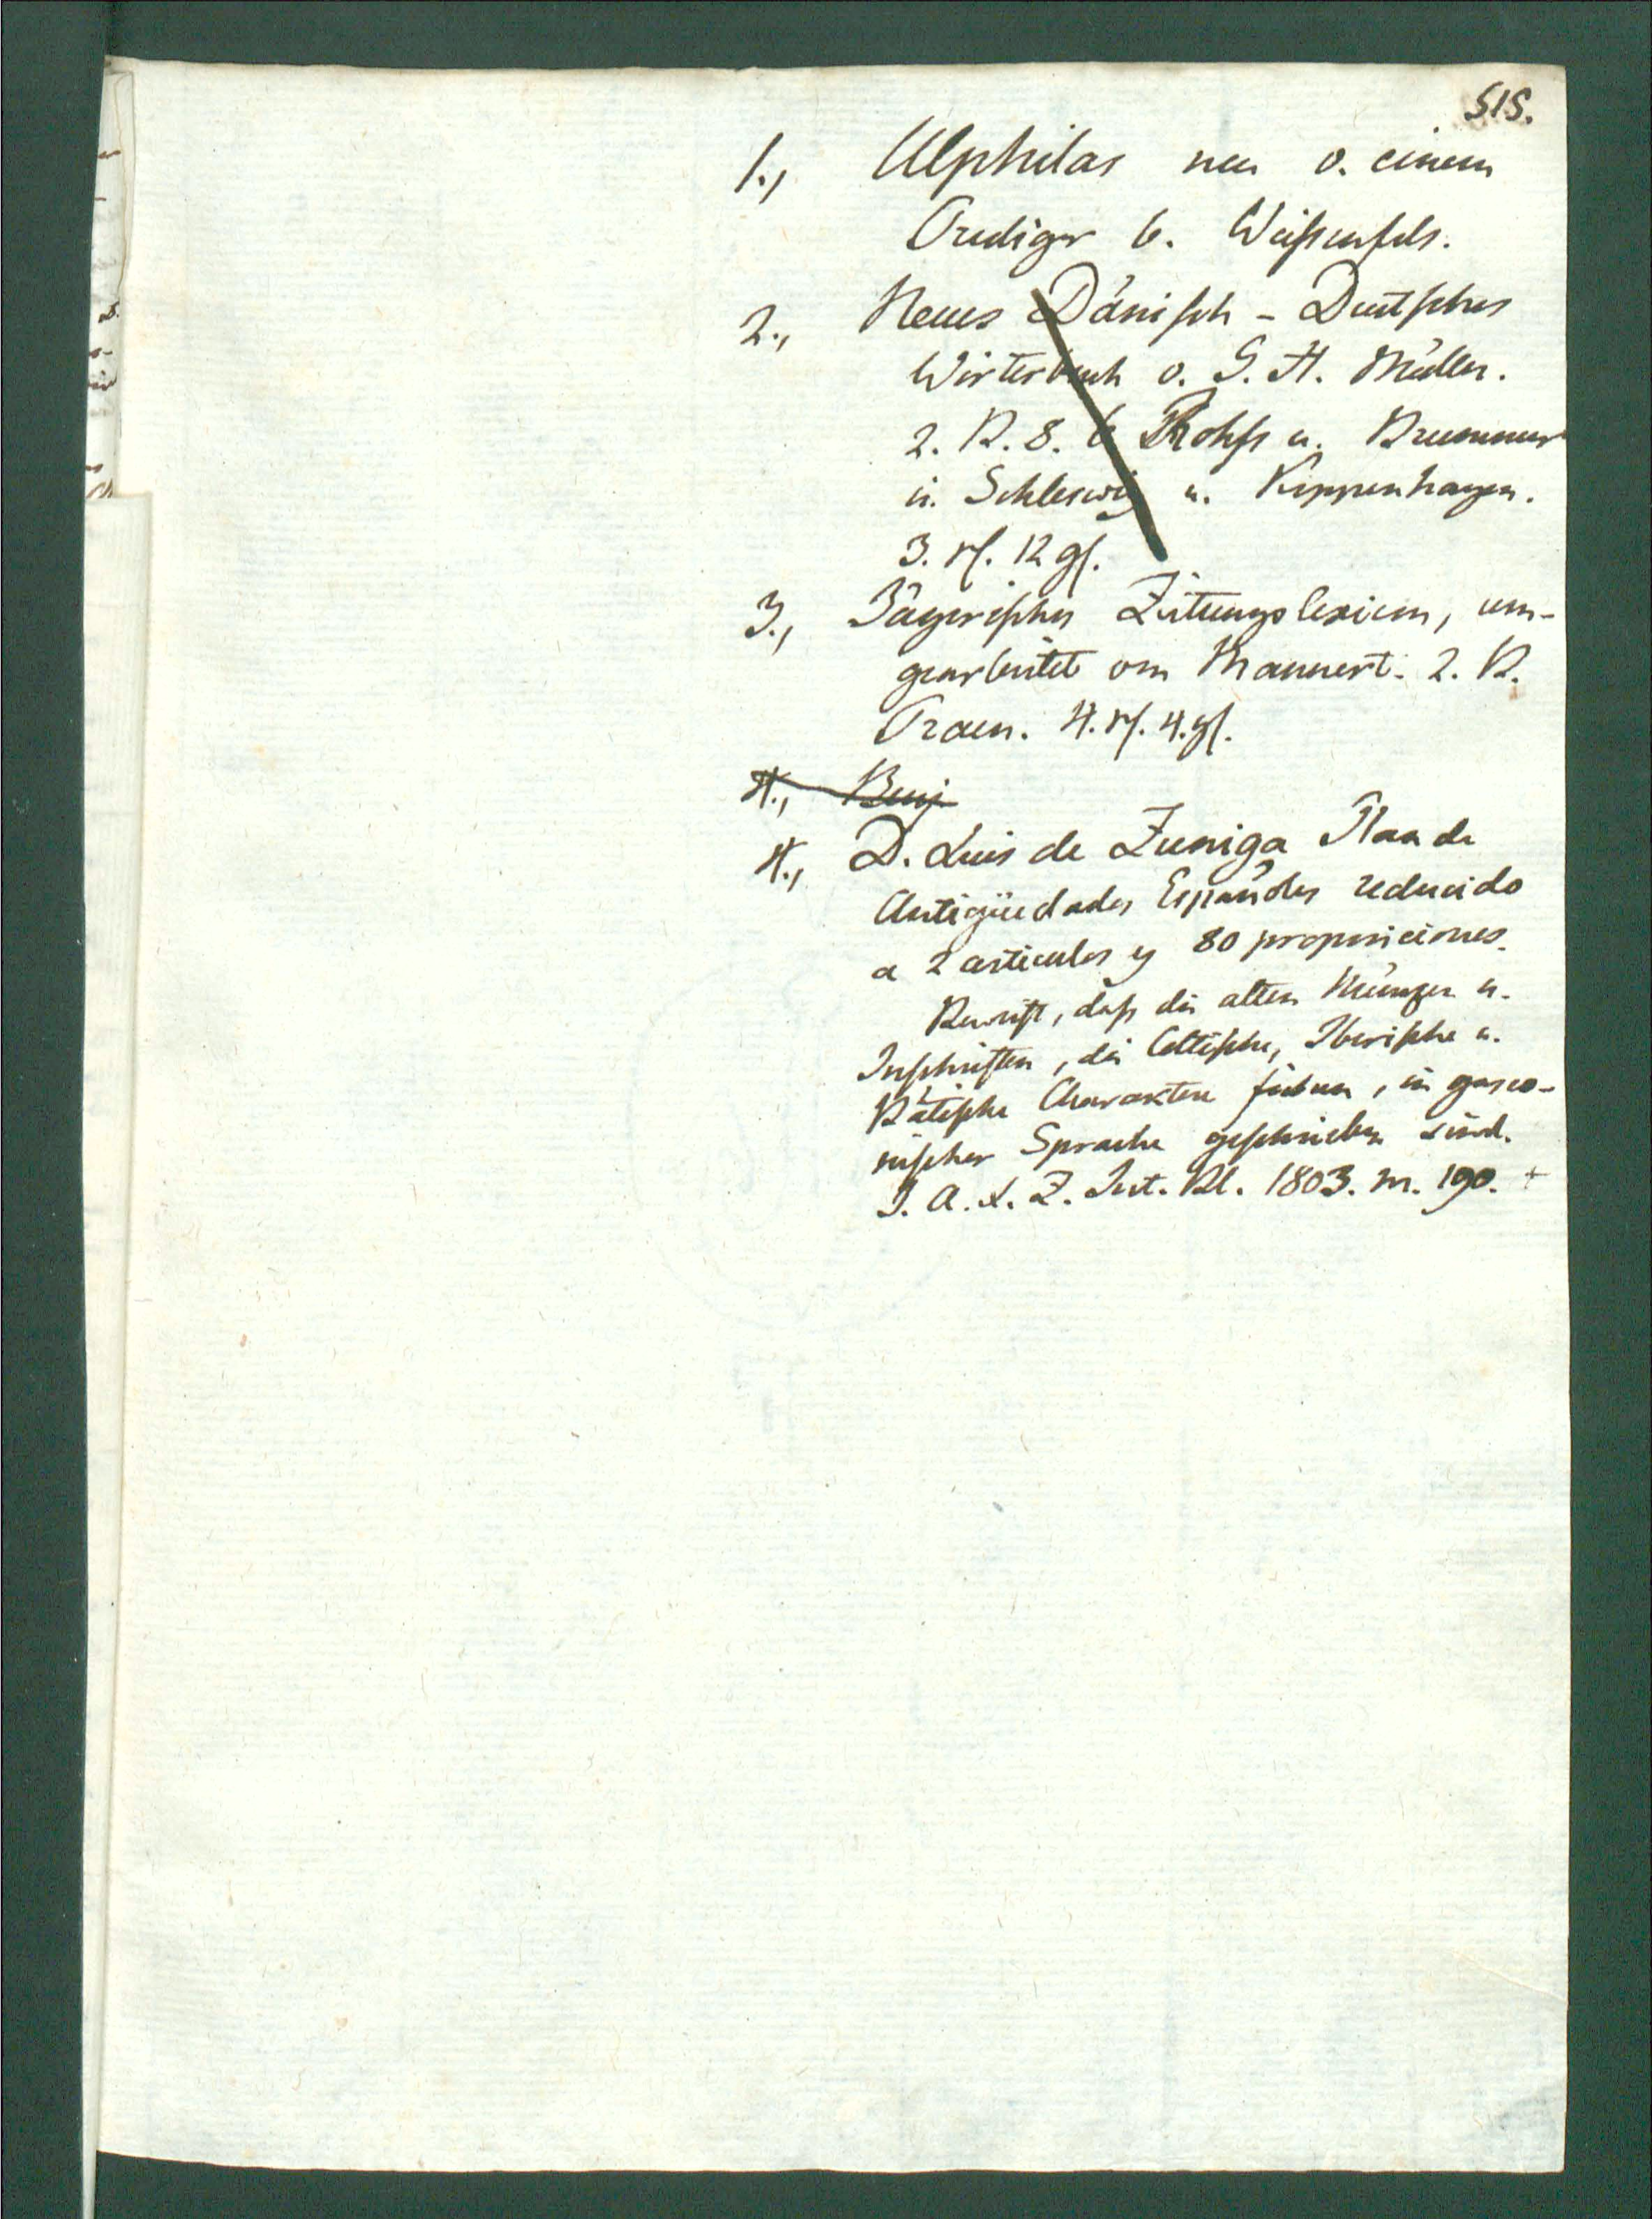 515.
1., Ulphilas neu v. einem
Prediger b. Weißenfels.
2., Neues Dänisch - Deutsches
Wörterbuch v. G. H. Müller.
2. B. 8. b Röhß u. Brummer
in Schleswig u. Koppenhagen.
3. rf. 12 gf.
3., Jägerisches Zeitungslexicon, um-
gearbeitet von Mannert. 2. B.
Praen. 4. rf. 4. gf.
4., Benj
4., D. Luis de Zuniga Plan de
Antigüedades Españoles reducido
a 2 articulos y 80 proposiciones.
Beweist, daß die alten Münzen u.
Inschriften, die Celtische, Iberische u.
Bätische Charaktere führen, in gasco-
nischer Sprache geschrieben sind.
J. A. L. Z. Int. Bl. 1803. nr. 190. +